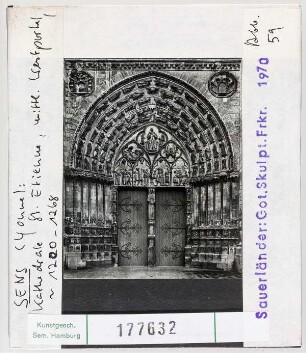 SENS (Yonne):
Kathedrale St. Etienne, mittl. Westportal
~ 1200 - 1268
Abb.
59
Sauerländer: Got. Skulpt. Frkr. 1970
Kunstgesch.
Sem. Hamburg
177632